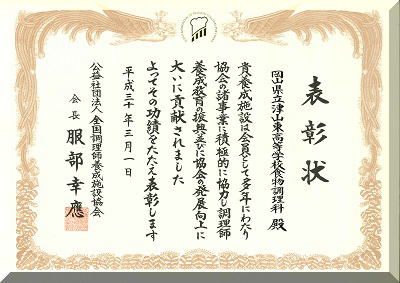 表彰状
岡山県立津山東高等学校食物調理科 殿
貴養成施設は会員として多年にわたり
協会の諸事業に積極的に協力し調理師
養成教育の振興並びに協会の発展向上に
大いに貢献されました
よってその功績をたたえ表彰します
平成三十年三月一日
公益社団法人 全国調理師養成施設協会
会長 服部幸應